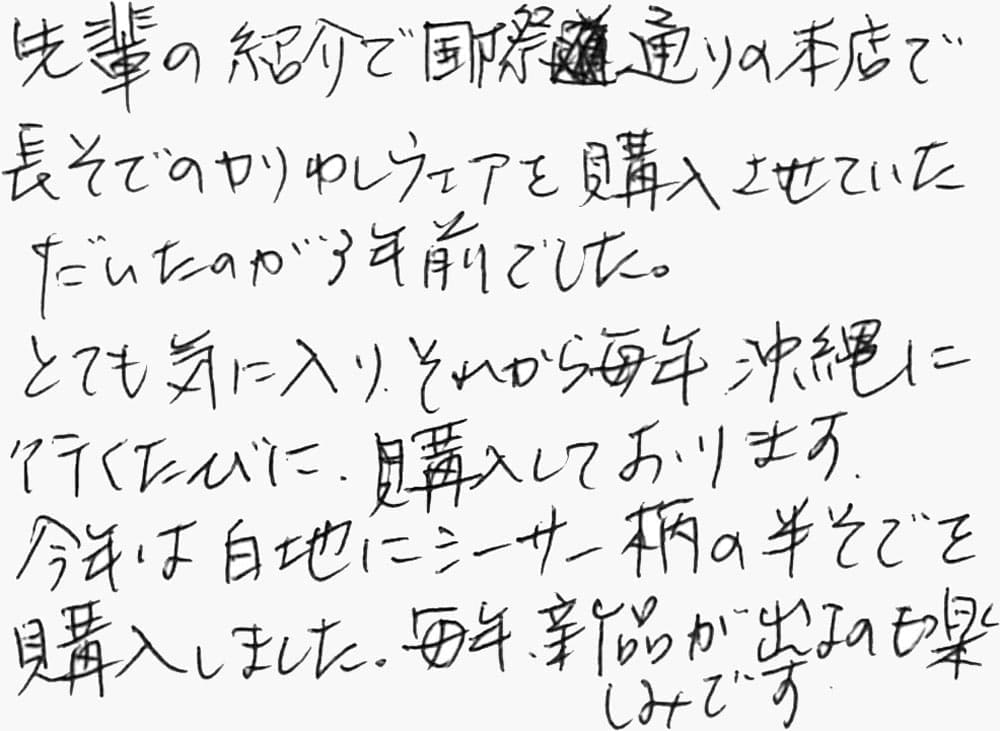 先輩の紹介で国際通りの本店で
長そでのかりゆしウェアを購入させていた
だいたのが3年前でした。
とても気に入り、それから毎年沖縄に
行くたびに、購入しております。
今年は白地にシーサー柄の半そでを
購入しました。毎年、新作品が出るのも楽
しみです